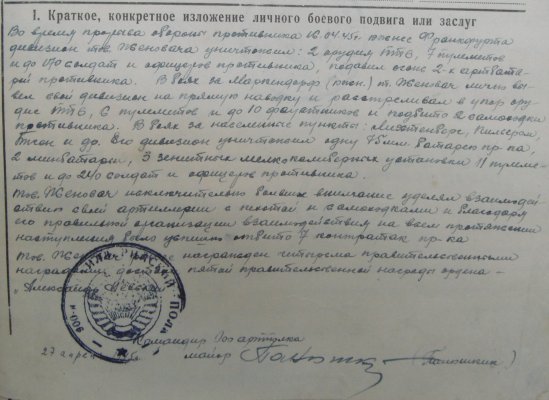 I. Краткое, конкретное изложение личного боевого подвига или заслуг
Во время прорыва обороны противника 16.04.45г. южнее Франкфурта
дивизион тов. Женовача уничтожил: 2 орудия ПТО, 7 пулеметов
и до 170 солдат и офицеров противника, подавил огонь 2-х артбата-
рей противника. В боях за Маркендорф т. Женовач лично вы-
вел свой дивизион на прямую наводку и расстреливал в упор ору-
дие ПТО, 6 пулеметов и до 10 фаустников и подбито 2 самоходки
противника. В боях за населенные пункты:
и др. Его дивизион уничтожил одну 75мм. батарею пр-ка,
2 минбатареи, 3 зенитных мелкокалиберных установки 11 пулеме-
тов и до 240 солдат и офицеров противника.
Тов. Женовач исключительно большое внимание уделял взаимодей-
ствию своей артиллерии с пехотой и самоходками и благодаря
его правильной организации взаимодействия на всем протяжении
наступления было успешно отбито 7 контратак пр-ка
Тов. Женовач награжден четырьмя правительственными
наградами, достоин пятой правительственной награды ордена -
"Александр Невский"
Командир артполка
27 апреля майор